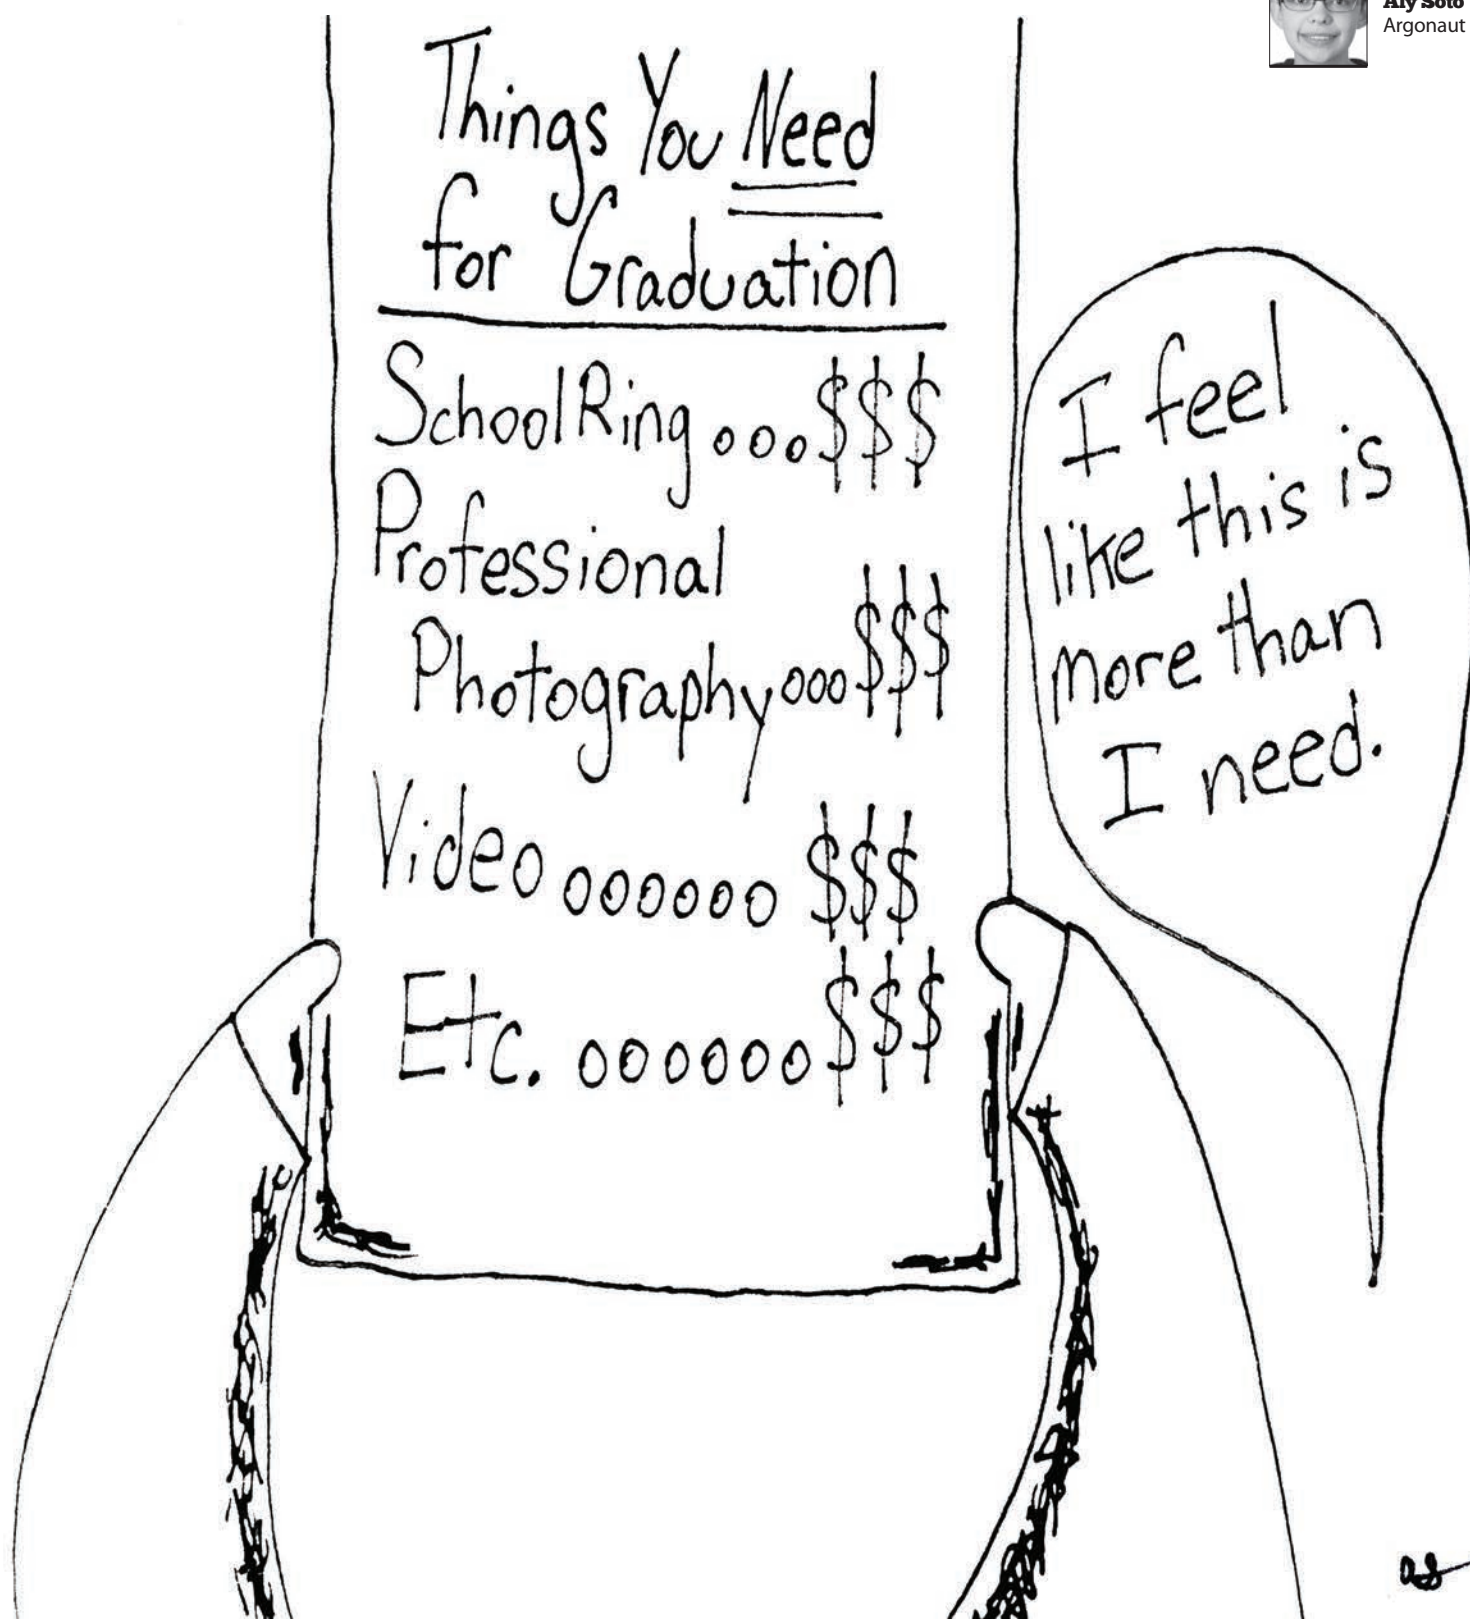 Aly Soto
Argonaut
Things You Need
for Graduation
School Ring...$$$
Professional
Photography...$$$
Video...... $$$
Etc. ......$$$
I feel
like this is
more than
I need.
as